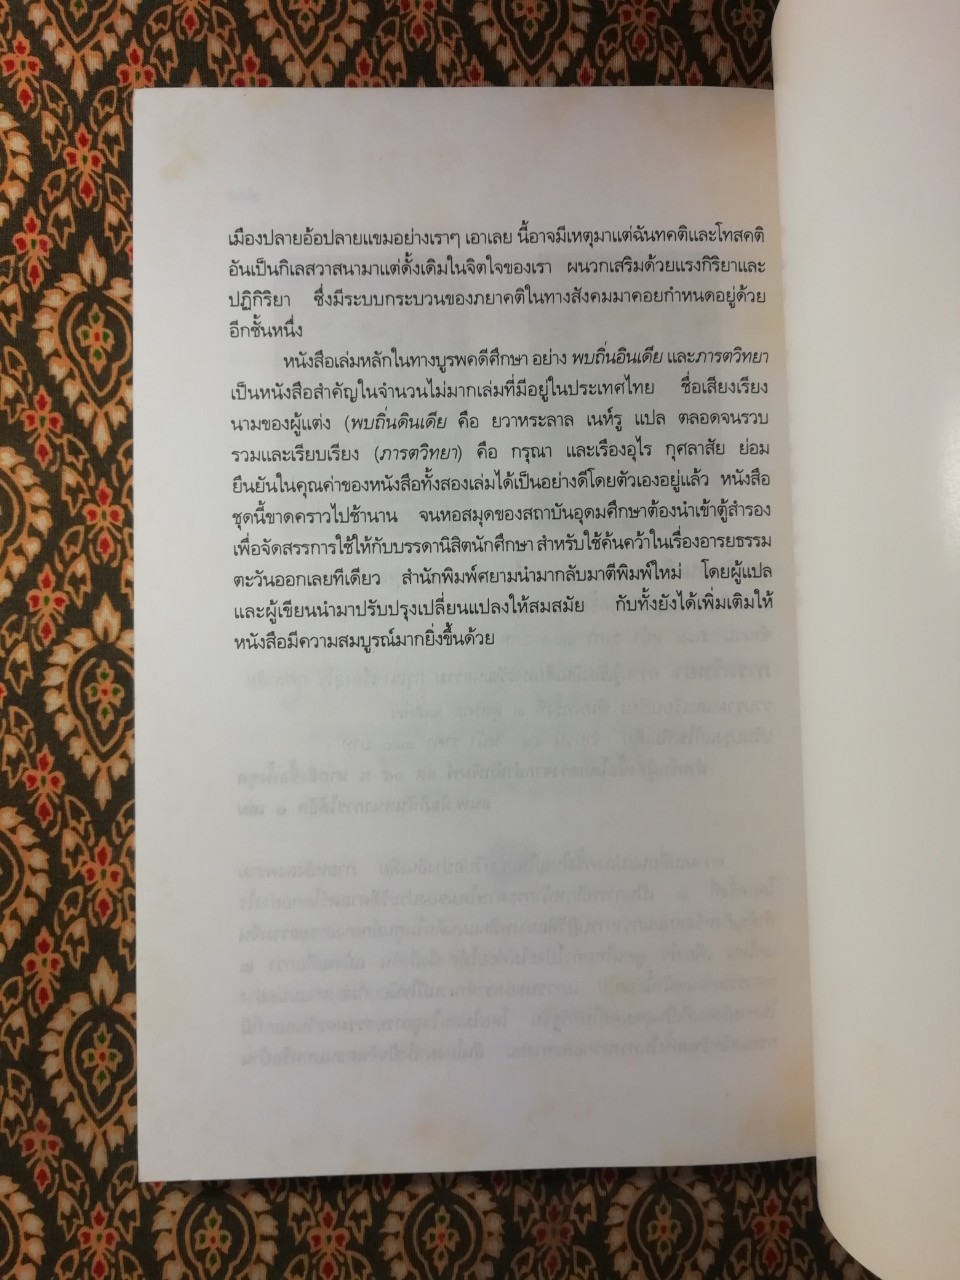 เมืองปลายอ้อปลายแขมอย่างเราๆ เอาเลย นี้อาจมีเหตุมาแต่ฉันทคติและโทสคติ
อันเป็นกิเลสวาสนามาแต่ดั้งเดิมในจิตใจของเรา ผนวกเสริมด้วยแรงกิริยาและ
ปฏิกิริยา ซึ่งมีระบบกระบวนของภยาคติในทางสังคมมาคอยกำหนดอยู่ด้วย
อีกชั้นหนึ่ง
หนังสือเล่มหลักในทางบูรพคดีศึกษา อย่าง พบถิ่นอินเดีย และภารตวิทยา
เป็นหนังสือสำคัญในจำนวนไม่มากเล่มที่มีอยู่ในประเทศไทย ชื่อเสียงเรียง
นามของผู้แต่ง (พบถิ่นดินเดีย คือ ยวาหระลาล เนห์รู แปล ตลอดจนรวบ
รวมและเรียบเรียง (ภารตวิทยา) คือ กรุณา และเรืองอุไร กุศลาสัย ย่อม
ยืนยันในคุณค่าของหนังสือทั้งสองเล่มได้เป็นอย่างดีโดยตัวเองอยู่แล้ว หนังสือ
ชุดนี้ขาดคราวไปช้านาน จนหอสมุดของสถาบันอุดมศึกษาต้องนำเข้าตู้สำรอง
เพื่อจัดสรรการใช้ให้กับบรรดานิสิตนักศึกษา สำหรับใช้ค้นคว้าในเรื่องอารยธรรม
ตะวันออกเลยทีเดียว สำนักพิมพ์ศยามนำมากลับมาตีพิมพ์ใหม่ โดยผู้แปล
และผู้เขียนนำมาปรับปรุงเปลี่ยนแปลงให้สมสมัย กับทั้งยังได้เพิ่มเติมให้
หนังสือมีความสมบูรณ์มากยิ่งขึ้นด้วย